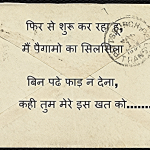 फिर से शुरू कर रहा हु,
मैं पैगामो का सिलसिला
बिन पढे फाड़ न देना,
कही तुम मेरे इस खत को........